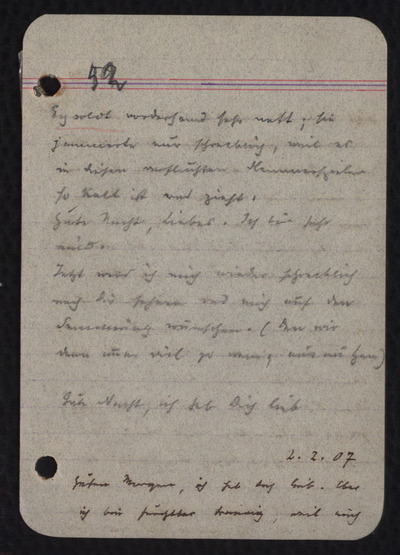 52
Eysoldt vorderhand sehr nett; sie
jammerte nur schrecklich, weil es
in diesen verfluchten Kammerspielen
so kalt ist und zieht.
Gute Nacht, Liebes. Ich bin sehr
müde.
Jetzt werd ich mich wieder schrecklich
nach Dir sehnen und mich auf den
wünschen. (Den wir
denn immer viel zu wenig ausnützen)
Gute Nacht, ich hab Dich lieb
2.2.07
Guten Morgen, ich hab Dich lieb. Aber
ich bin furchtbar traurig, weil mich